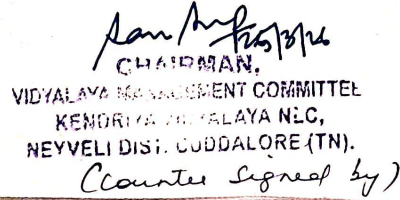 25/3/26
CHAIRMAN,
VIDYALAYA MANAGEMENT COMMITTEE
KENDRIYA VIDYALAYA NLC,
NEYVELI DIST. CUDDALORE (TN).
(Counter signed by)